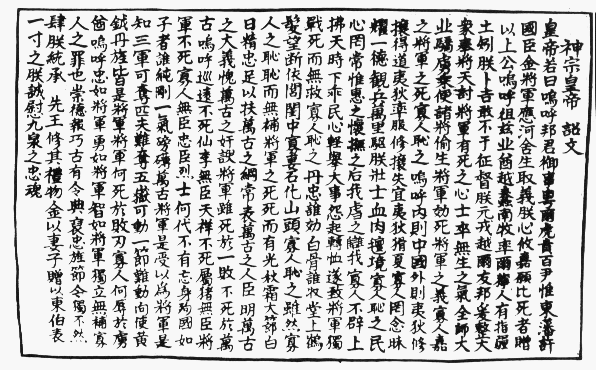 神宗皇帝 詔文
皇帝若曰嗚呼邦君御事粤爾虎賁百尹惟東藩許
國臣金將軍應河舍生取義朕心攸嘉願比死者贈
以上公嗚呼徂玆業酋越蠢南牧率爾寧人有指疆
土矧朕卜吉敢不于征督朕元戎越爾友邦爰整大
衆奉將天討將軍有死之心士卒無生之氣全師大
驅虜衆使諸將偷生將軍効死將軍之義寡人嘉
之將軍之死寡人恥之 嗚呼內則中國外則夷狄修
攘得道夷狄率服修攘失宜夷狄猾夏寡人罔念昧
耀一德觀兵萬里驅朕壯士血肉邊境寡人恥之民
心罔常惟惠之懷撫之后我虐之讎我寡人不辟上
拂天時下乖民心輕擧大事怨起轉恤遂致將軍獨
戰死而無救寡人恥之丹忠誰効白骨誰收堂上鶴
髮望斷依閭閨中寡妻石化山頭寡人恥之雖然寡
人之恥恥而無補將軍之死死而有光秋霜大節白
日精忠足以扶萬古之綱常表萬古之人臣明萬古
之大義愧萬古之奸諛將軍雖死於一敗不死於萬
古嗚呼巡遠不死仙李無臣天祥不死屬猪無臣將
軍不死寡人無臣忠臣烈士何代不有忘身殉國如
子者誰純剛一氣磅礴萬古將軍是受以爲將軍是
知三軍可奪匹夫難奪五嶽可動一節難動向使黃
鉞丹旌皆是將軍將軍何死於敗刃寡人何辱於虜
酋嗚呼忠如將軍勇如將軍智如將軍獨立無補寡
人之罪也崇德報巧古有令典褒忠旌節今獨不然
肆朕統承 先王修其禮物金以妻子贈以東伯表
一寸之朕誠慰九泉之忠魂